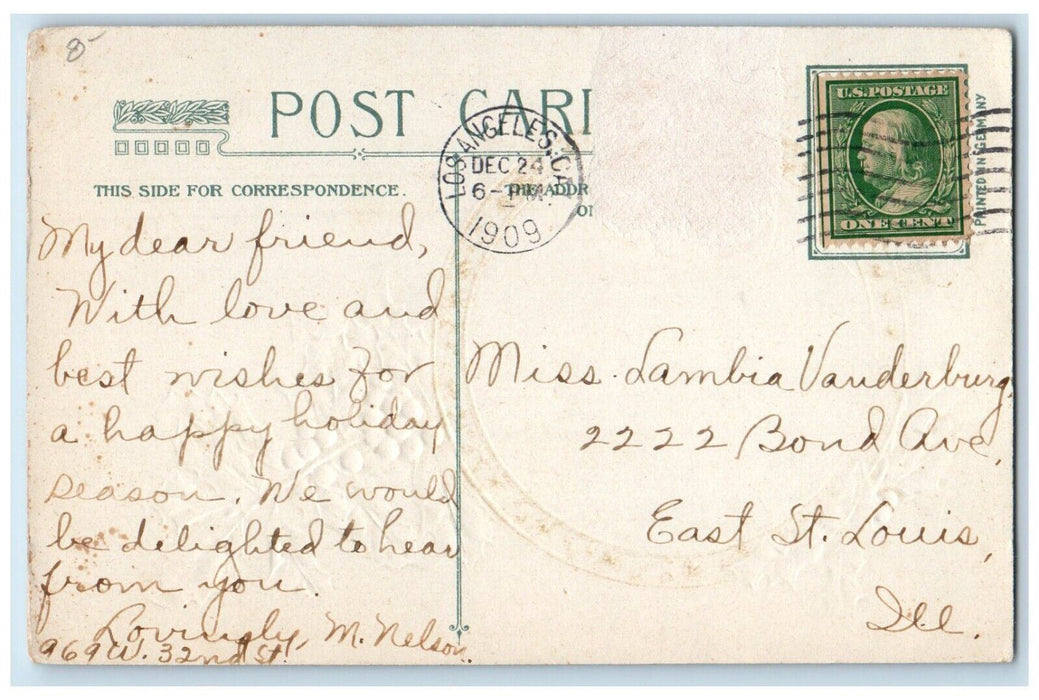 8-
POST CAR
LOS ANGELES, CA
DEC 24
6- PM
1909
U.S. POSTAGE
ONE CENT
PRINTED IN GERMANY
THIS SIDE FOR CORRESPONDENCE.
THE ADDR
My dear friend,
With love and
best wishes for
a happy holiday
season. We would
be delighted to hear
from you.
Lovingly, M. Nelson.
969 W. 32nd St.
Miss. Lambia Vanderburg,
2222 Bond Ave,
East St. Louis,
Ill.